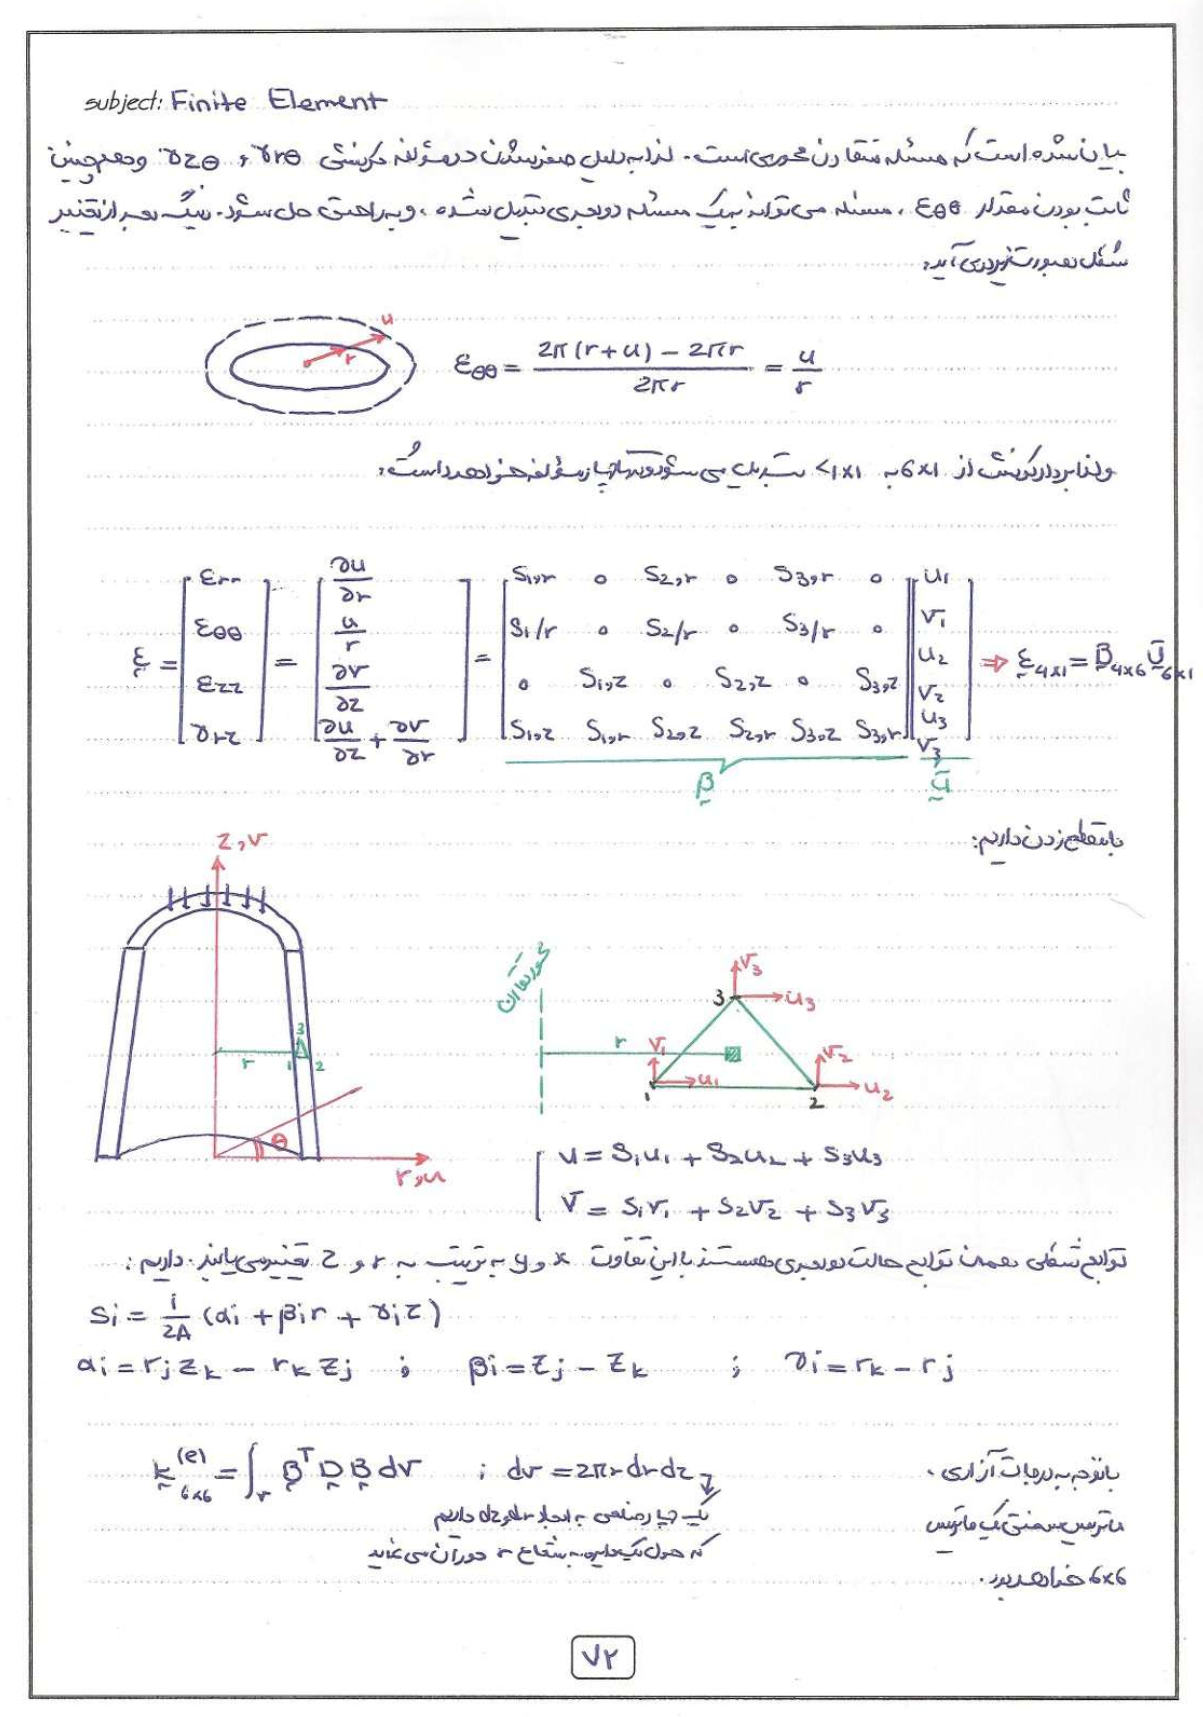 subject: Finite Element
بیان شده است که مسئله متقارن محوری است. لذا به دلیل صفر شدن دو مؤلفه کرنشی γrθ و γzθ و همچنین
ثابت بودن مقدار εθθ ، مسئله می‌تواند به یک مسئله دوبعدی تبدیل شده ، و به راحتی حل شود. رینگ بعد از تغییر
شکل بصورت زیر درمی‌آید:
u
r
εθθ = (2π(r+u) − 2πr) / 2πr = u/r
ولذا بردار کرنش از 6×1 به 4×1 تبدیل می‌شود و تنها چهار مؤلفه خواهد داشت:
ε = [εrr ; εθθ ; εzz ; γrz] = [∂u/∂r ; u/r ; ∂v/∂z ; ∂u/∂z + ∂v/∂r] = [S1,r 0 S2,r 0 S3,r 0 ; S1/r 0 S2/r 0 S3/r 0 ; 0 S1,z 0 S2,z 0 S3,z ; S1,z S1,r S2,z S2,r S3,z S3,r] [u1 ; v1 ; u2 ; v2 ; u3 ; v3] ⇒ ε4×1 = B4×6 U6×1
B
U
با مقطع زدن داریم:
z,v
r
1
2
3
θ
r,u
محور تقارن
r
v3
3
u3
v1
u1
1
v2
u2
2
u = S1u1 + S2u2 + S3u3
v = S1v1 + S2v2 + S3v3
توابع شکلی همان توابع حالت دوبعدی هستند با این تفاوت x و y به ترتیب به r و z تغییر می‌یابند. داریم:
Si = 1/2A (αi + βir + γiz)
αi = rjzk − rkzj ; βi = zj − zk ; γi = rk − rj
با توجه به درجات آزادی ،
ماتریس سختی یک ماتریس
6×6 خواهد بود.
k(e)6×6 = ∫v BT D B dv ; dv = 2πrdrdz
به ابعاد dr و dz داریم
که حول یک دایره به شعاع r دوران می‌نماید
۷۲